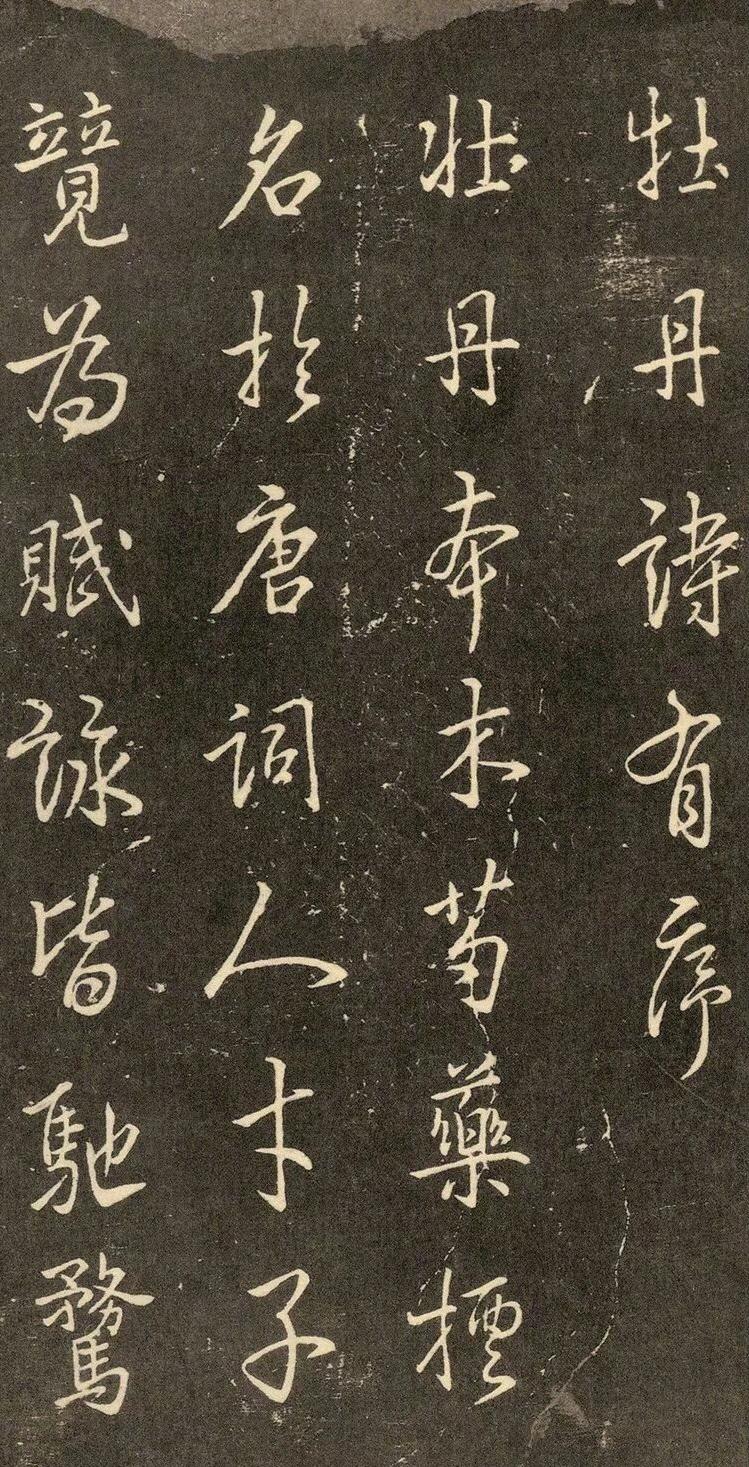 牡丹詩有序
牡丹本木芍藥標
名於唐詞人才子
競為賦詠皆馳騖